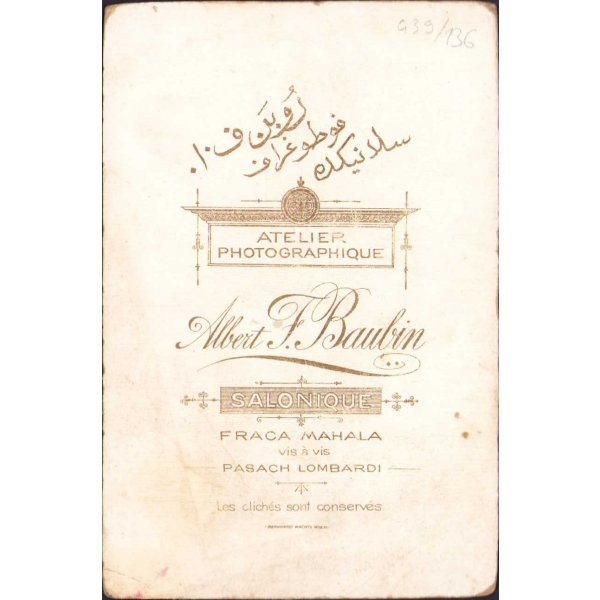 G39/136
روبن ف. ا.
فوطوغراف
سلانيكك
ATELIER
PHOTOGRAPHIQUE
Albert F. Baubin
SALONIQUE
FRACA MAHALA
VIS à VIS
PASACH LOMBARDI
Les clichés sont conservés